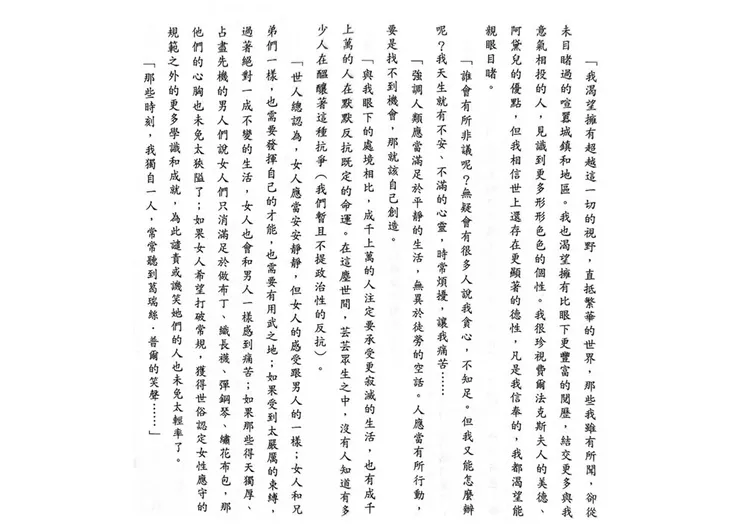 「我渴望擁有超越這一切的視野，直抵繁華的世界，那些我雖有所聞，卻從
未目睹過的喧囂城鎮和地區。我也渴望擁有比眼下更豐富的閱歷，結交更多與我
意氣相投的人，見識到更多形形色色的個性。我很珍視費爾法克斯夫人的美德、
阿黛兒的優點，但我相信世上還存在更顯著的德性，凡是我信奉的，我都渴望能
親眼目睹。
「誰會有所非議呢？無疑會有很多人說我貪心，不知足。但我又能怎麼辦
呢？我天生就有不安、不滿的心靈，時常煩擾，讓我痛苦……
「強調人類應當滿足於平靜的生活，無異於徒勞的空話。人應當有所行動，
要是找不到機會，那就該自己創造。
「與我眼下的處境相比，成千上萬的人注定要承受更寂滅的生活，也有成千
上萬的人在默默反抗既定的命運。在這塵世間，芸芸眾生之中，沒有人知道有多
少人在醞釀著這種抗爭（我們暫且不提政治性的反抗）。
「世人總認為，女人應當安安靜靜，但女人的感受跟男人的一樣；女人和兄
弟們一樣，也需要發揮自己的才能，也需要有用武之地；如果受到太嚴厲的束縛，
過著絕對一成不變的生活，女人也會和男人一樣感到痛苦；如果那些得天獨厚、
占盡先機的男人們說女人們只消滿足於做布丁、織長襪、彈鋼琴、繡花布包，那
他們的心胸也未免太狹隘了；如果女人希望打破常規，獲得世俗認定女性應守的
規範之外的更多學識和成就，為此譴責或譏笑她們的人也未免太輕率了。
「那些時刻，我獨自一人，常常聽到葛瑞絲·普爾的笑聲……」